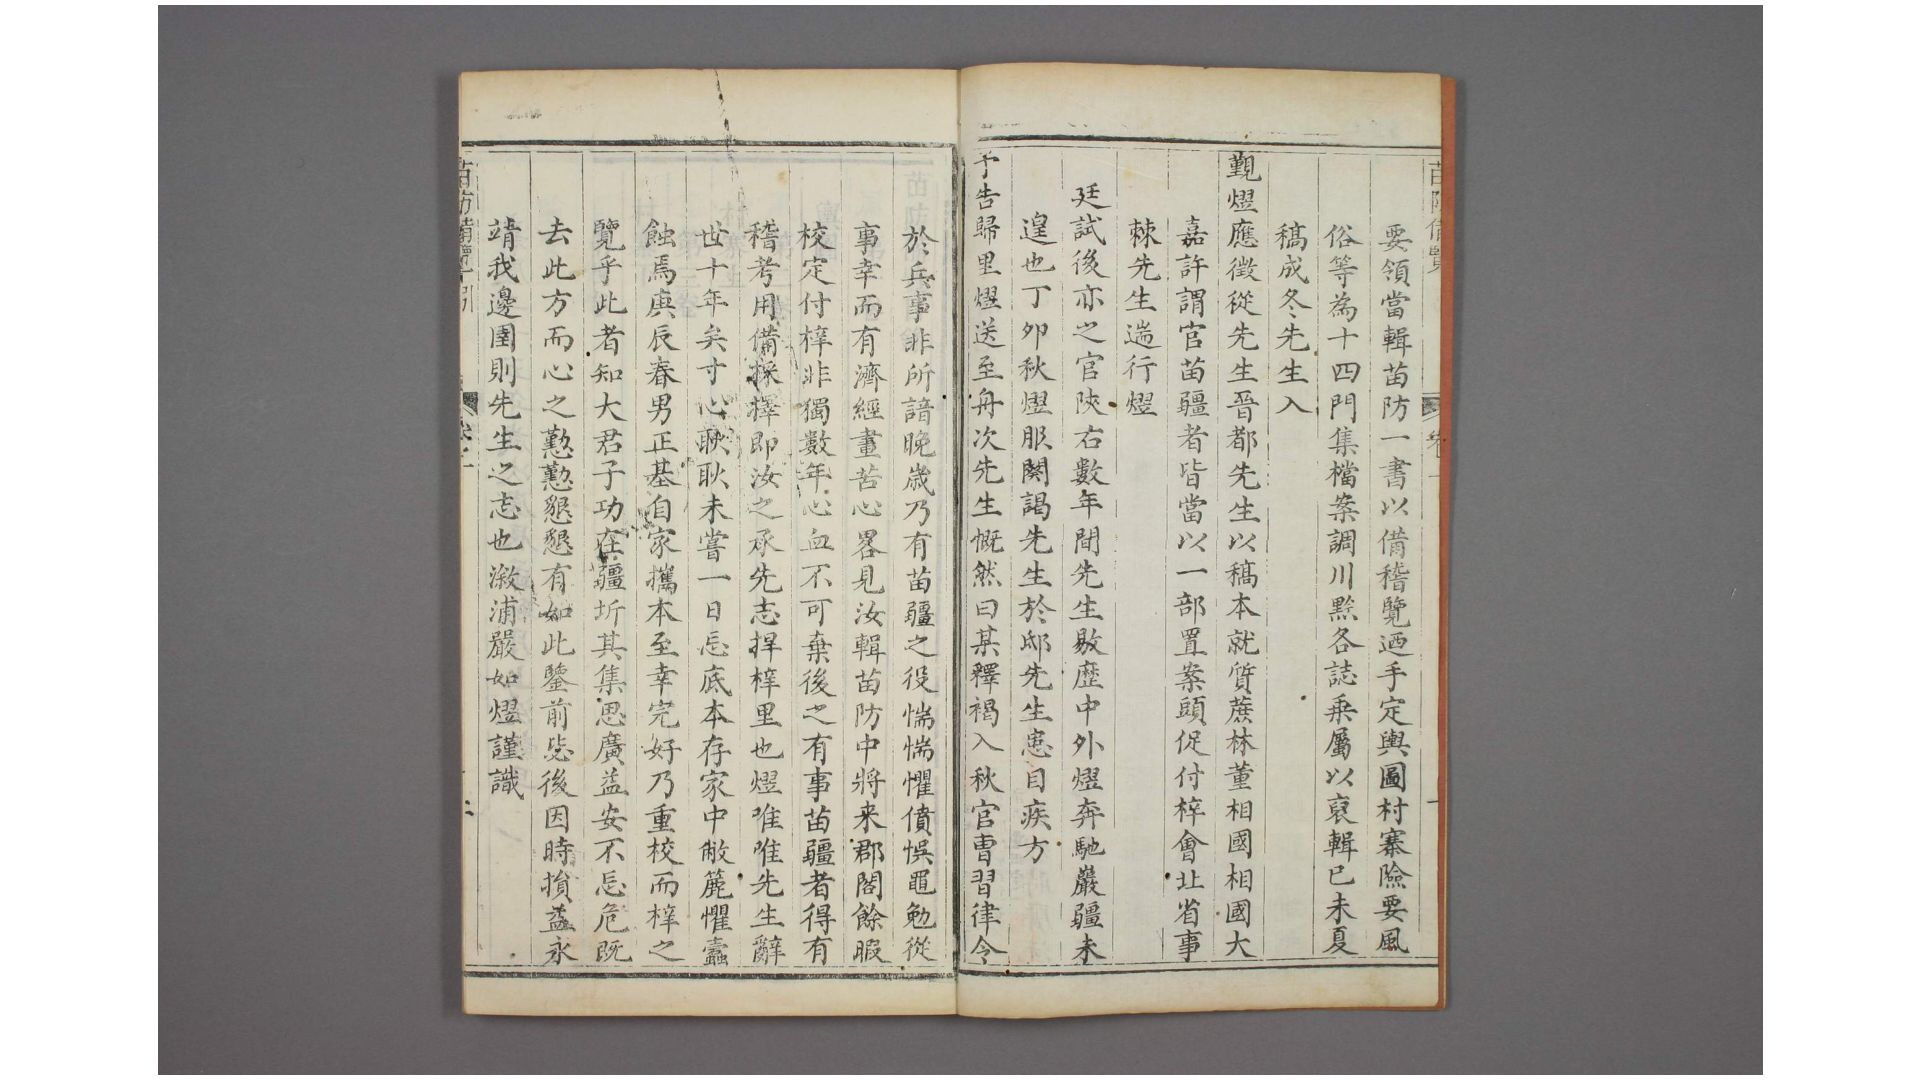 要領當輯苗防一書以備稽覽迺手定輿圖村寨險要風
俗等為十四門集檔案調川黔各誌乗屬以裒輯已未夏
稿成冬先生入
覲熤應徵從先生晉都先生以稿本就質蔗林董相國相國大
嘉許謂官苗疆者皆當以一部置案頭促付梓會北省事
棘先生遄行熤
廷試後亦之官陜右數年間先生敭歷中外熤奔馳巖疆未
遑也丁卯秋熤服闋謁先生於邸先生患目疾方
予告歸里熤送至舟次先生慨然曰某釋褐入秋官曹習律令
於兵事非所諳晚歲乃有苗疆之役惴惴懼僨悞黽勉從
事幸而有濟經畫苦心畧見汝輯苗防中將来郡閤餘暇
校定付梓非獨數年心血不可棄後之有事苗疆者得有
稽考用備採擇即汝之承先志捍梓里也熤唯唯先生辭
世十年矣寸心耿耿未嘗一日忘底本存家中敝簏懼蠧
蝕焉庚辰春男正基自家攜本至幸完好乃重校而梓之
覽乎此者知大君子功在疆圻其集思廣益安不忘危既
去此方而心之懃懃懇懇有如此鑒前毖後因時損益永
靖我邊圉則先生之志也溆浦嚴如熤謹識